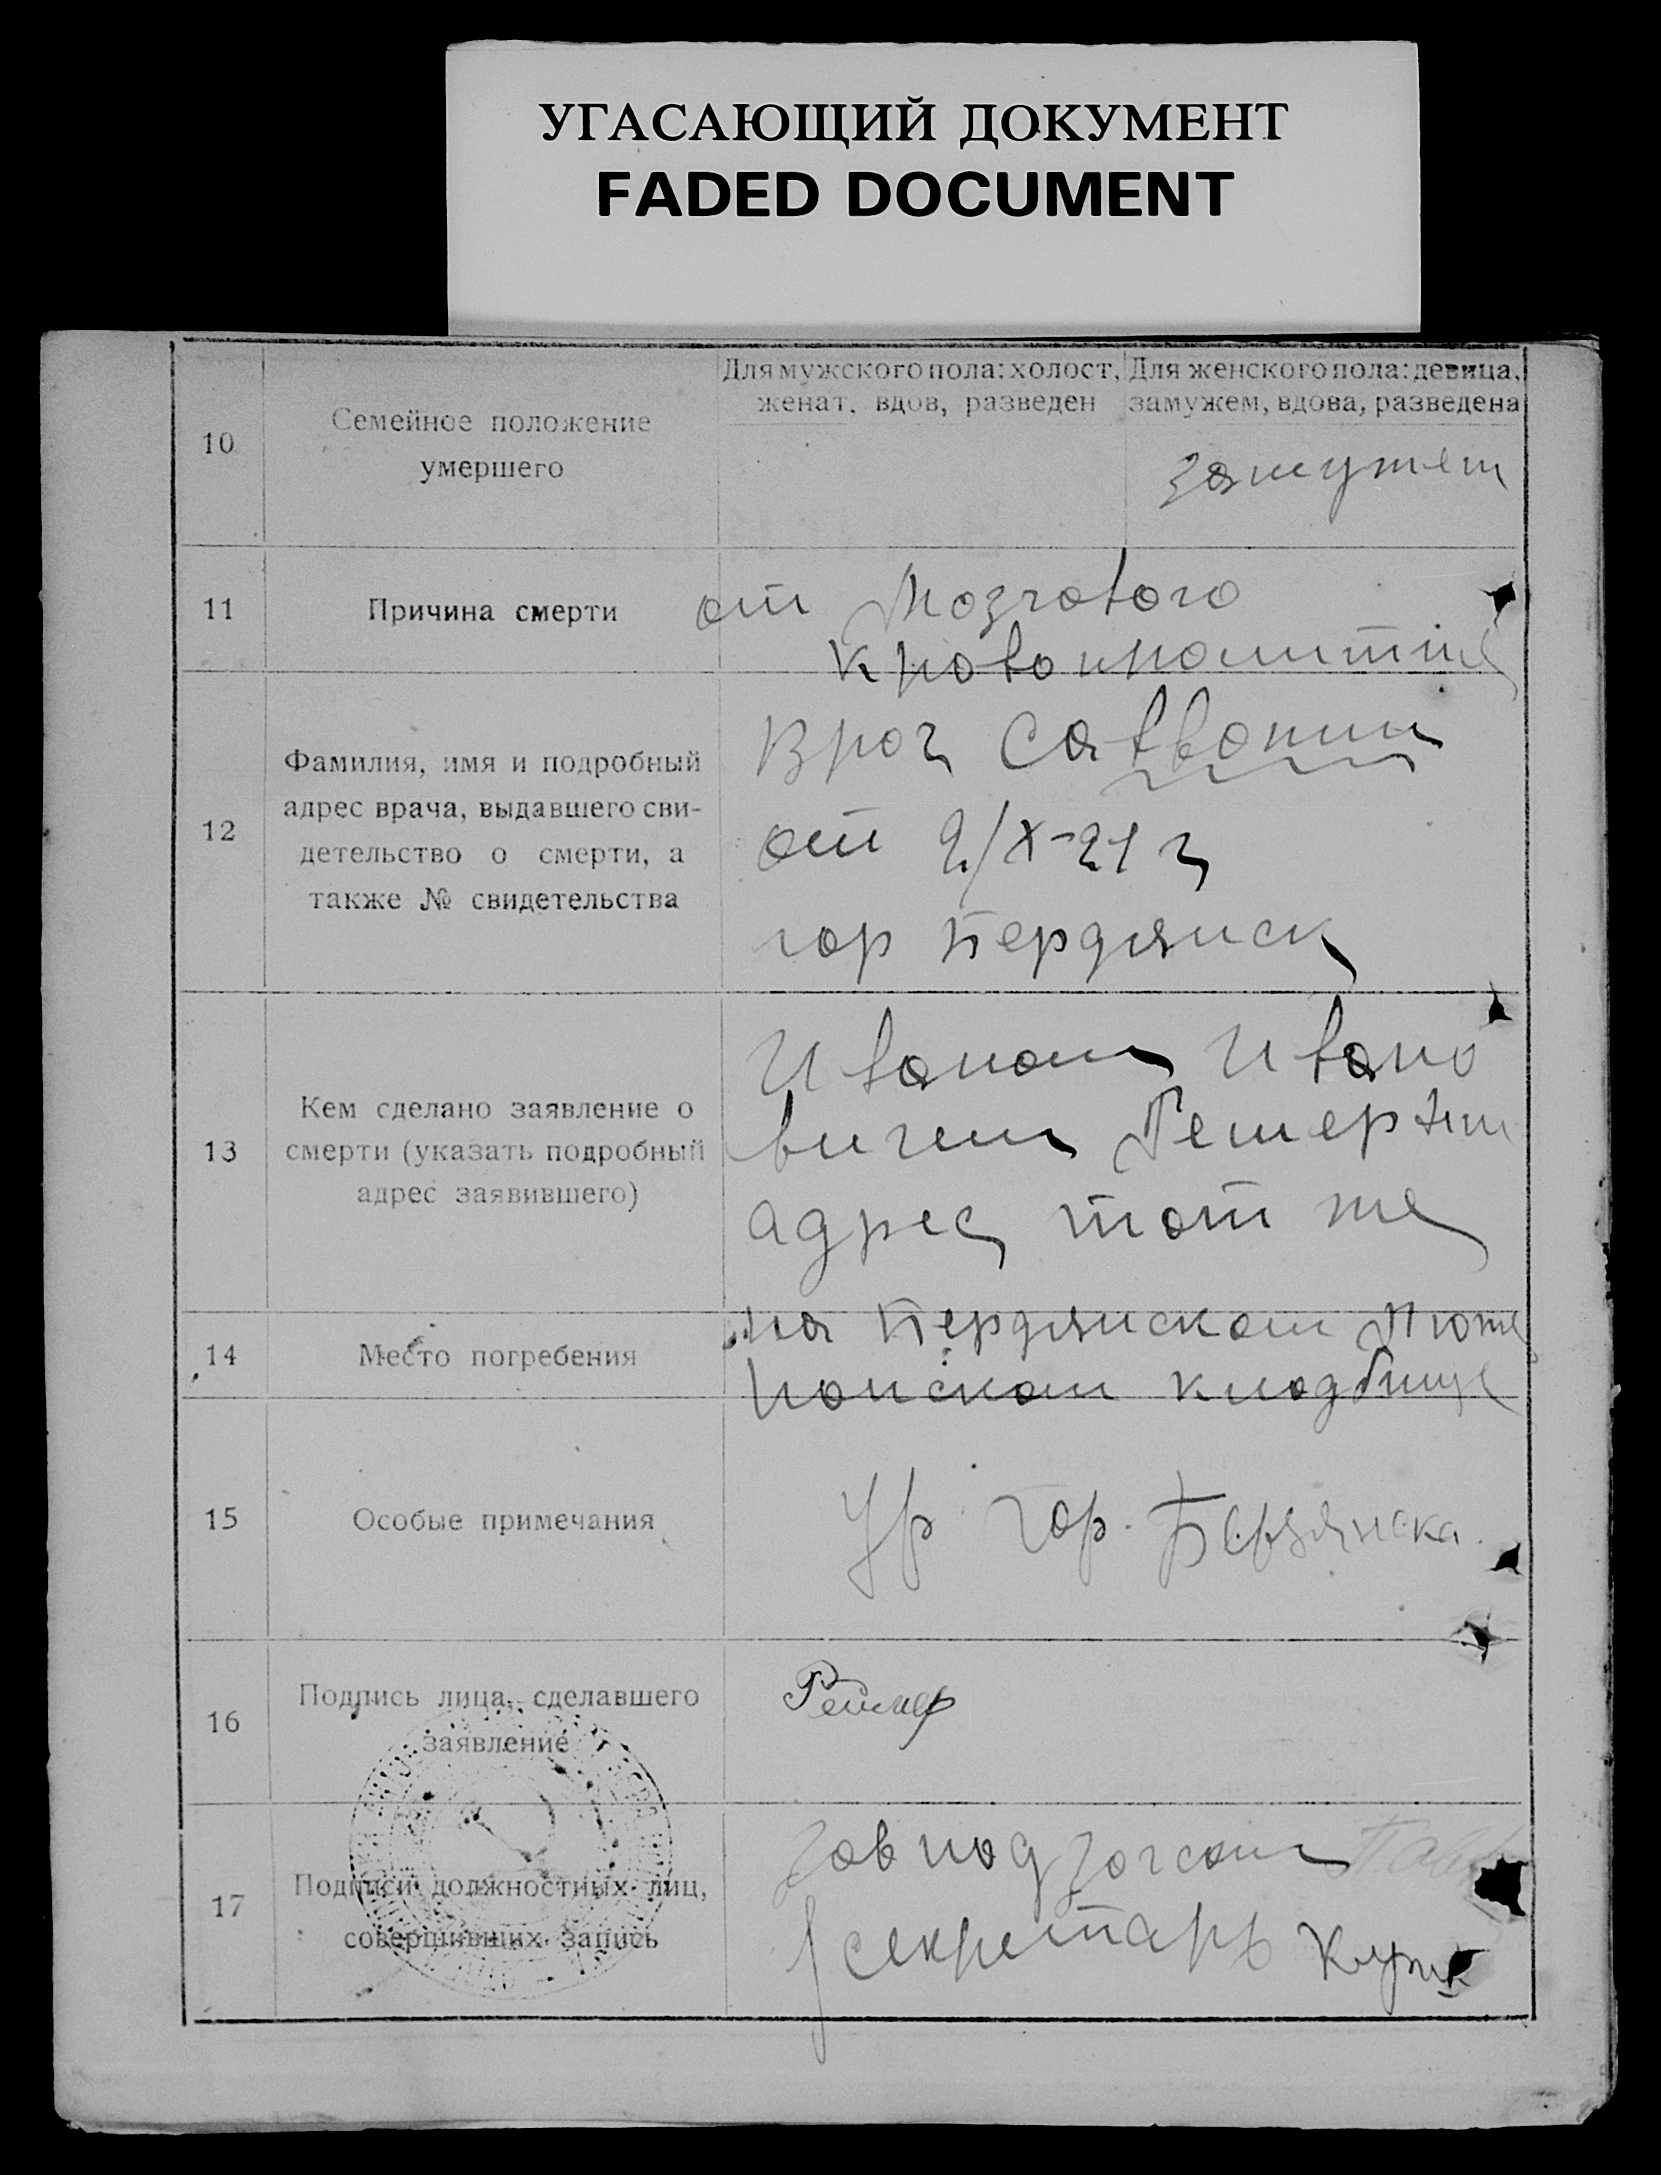 УГАСАЮЩИЙ ДОКУМЕНТ
FADED DOCUMENT
10
Семейное положение
умершего
Для мужского пола: холост,
женат, вдов, разведен
Для женского пола: девица,
замужем, вдова, разведена
замужем
11
Причина смерти
от Мозгового
кровоиз
12
Фамилия, имя и подробный
адрес врача, выдавшего сви-
детельство о смерти, а
также № свидетельства
Врач
от 2/X-21 г
гор Бердянск
13
Кем сделано заявление о
смерти (указать подробный
адрес заявившего)
Иваном Ивано
вичем
адрес тот же
14
Место погребения
на Бердянском
кладбище
15
Особые примечания
Ур. гор. Бердянска.
16
Подпись лица, сделавшего
заявление
Реймер
17
Подписи должностных лиц,
совершивших запись
Зав под загсом
секретарь